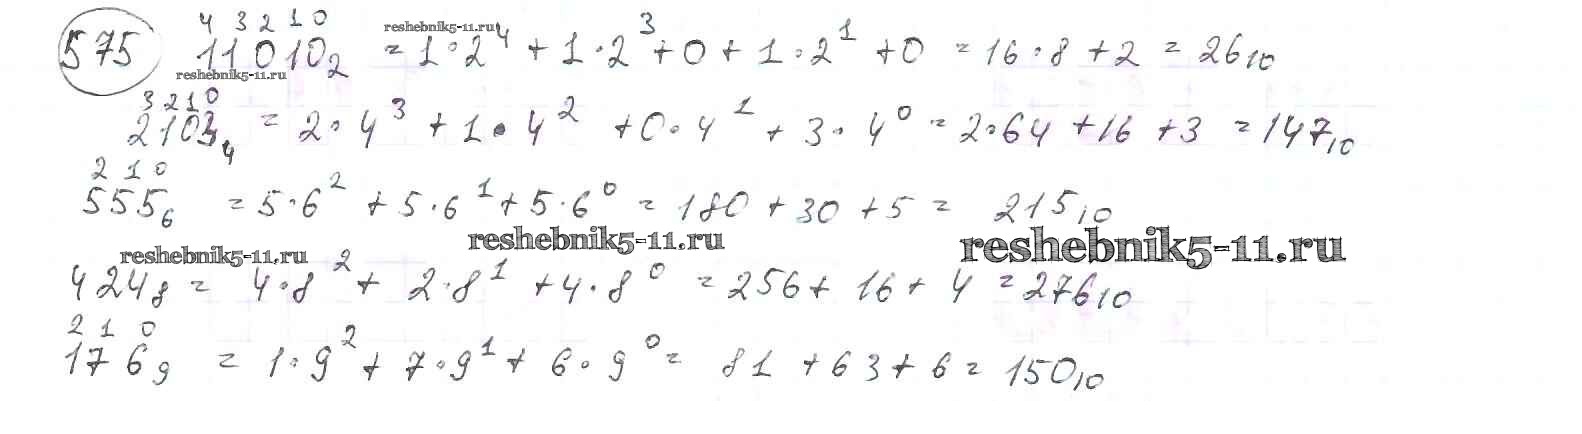 4 3 2 1 0 reshebnik5-11.ru
575 11010₂ = 1·2⁴ + 1·2³ + 0 + 1·2¹ + 0 = 16·8 + 2 = 26₁₀
reshebnik5-11.ru
3 2 1 0
2103₄ = 2·4³ + 1·4² + 0·4¹ + 3·4⁰ = 2·64 + 16 + 3 = 147₁₀
2 1 0
555₆ = 5·6² + 5·6¹ + 5·6⁰ = 180 + 30 + 5 = 215₁₀
reshebnik5-11.ru reshebnik5-11.ru reshebnik5-11.ru
424₈ = 4·8² + 2·8¹ + 4·8⁰ = 256 + 16 + 4 = 276₁₀
2 1 0
176₉ = 1·9² + 7·9¹ + 6·9⁰ = 81 + 63 + 6 = 150₁₀